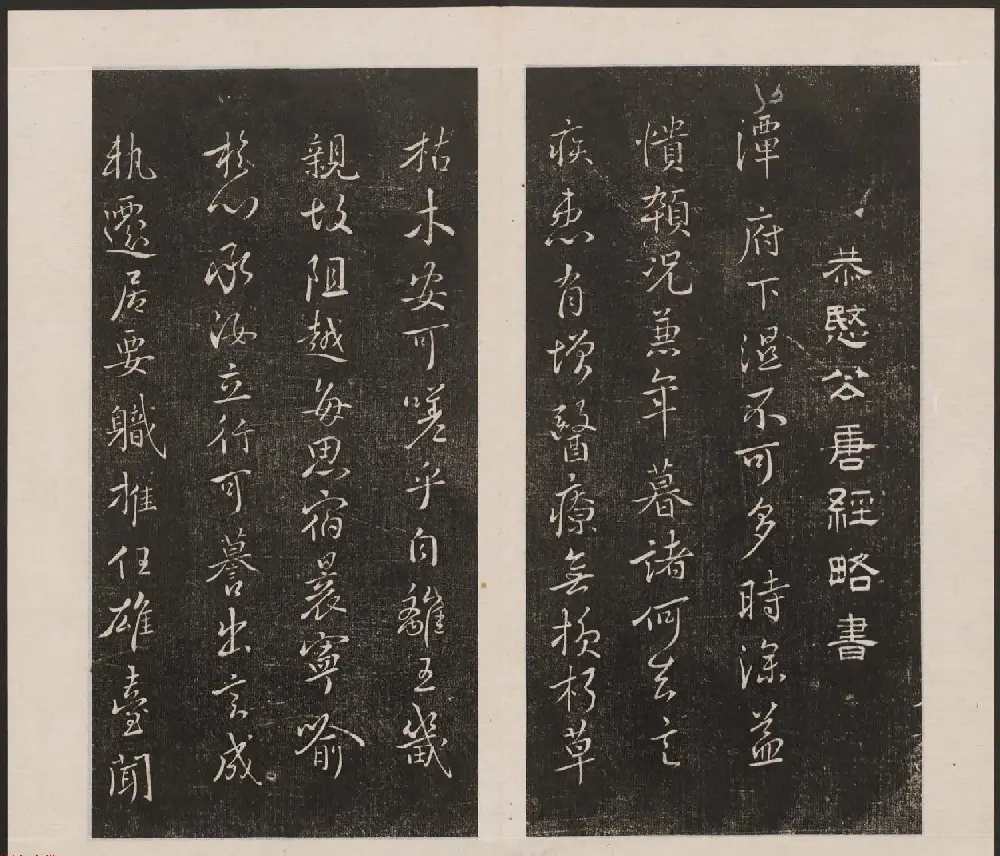 恭愍公唐經略書
潭府下濕不可多時深益
憒頹況兼年暮諸何足言
疾患有增醫療無損朽草
枯木安可嗟乎自離王畿
親故阻越每思宿晨寧喻
於心承汝立行可譽出言成
執遷居要職推任雄臺聞